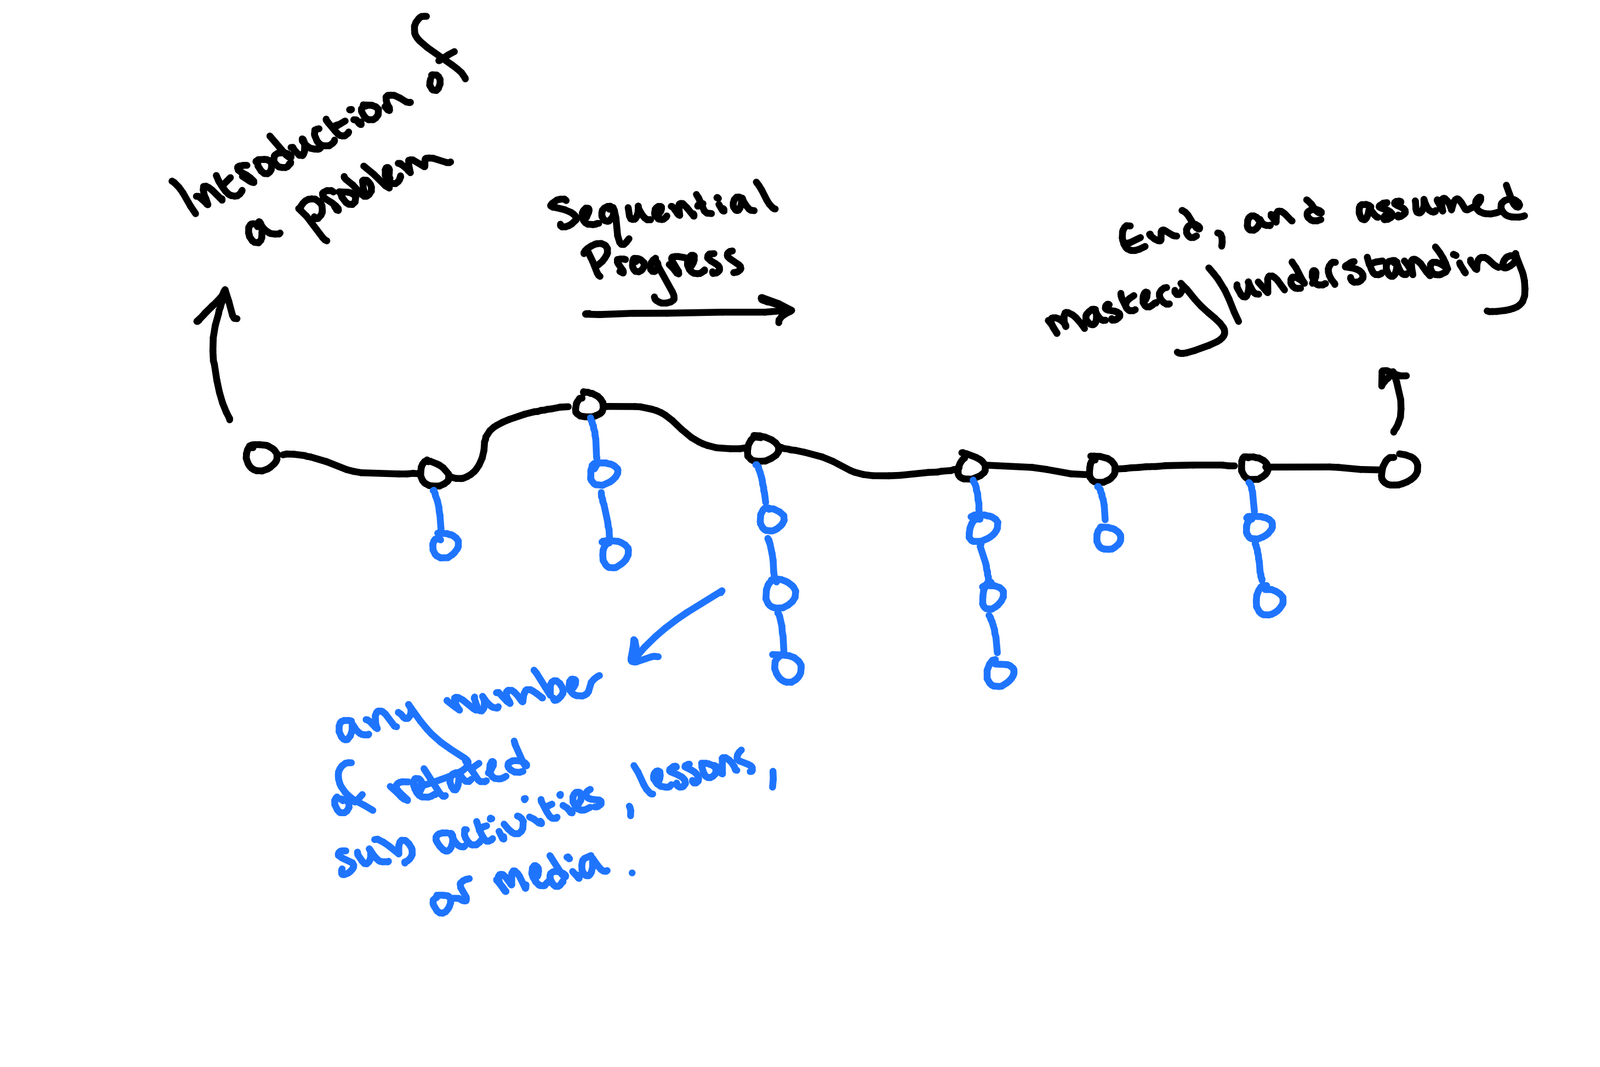 Introduction of
a problem
Sequential
Progress
End, and assumed
mastery/understanding
any number
of related
sub activities, lessons,
or media.